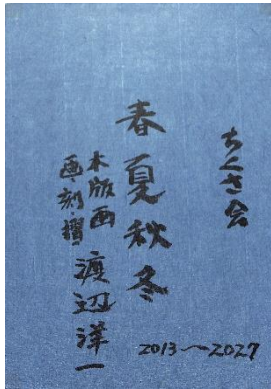 ちくさ会
春夏秋冬
木版画
画・刻・摺
渡辺洋一
2013〜2027